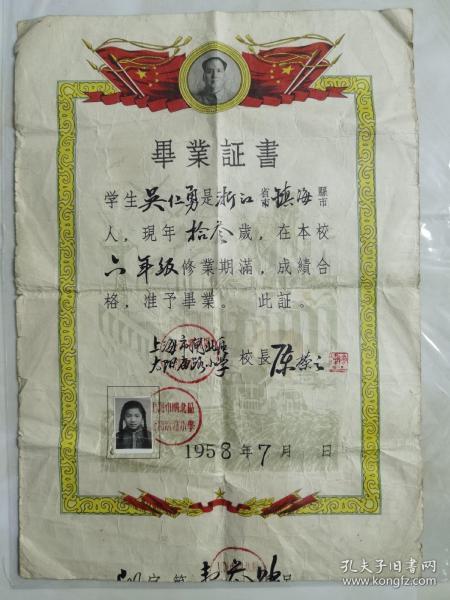 畢業証書
学生吴仁勇是浙江省市镇海縣市
人，現年拾叁歲，在本校
六年級修業期滿，成績合
格，准予畢業。此証。
上海市閘北區
大陽廟路小学
校長陈
1958年7月 日
字第 号
孔夫子旧书网